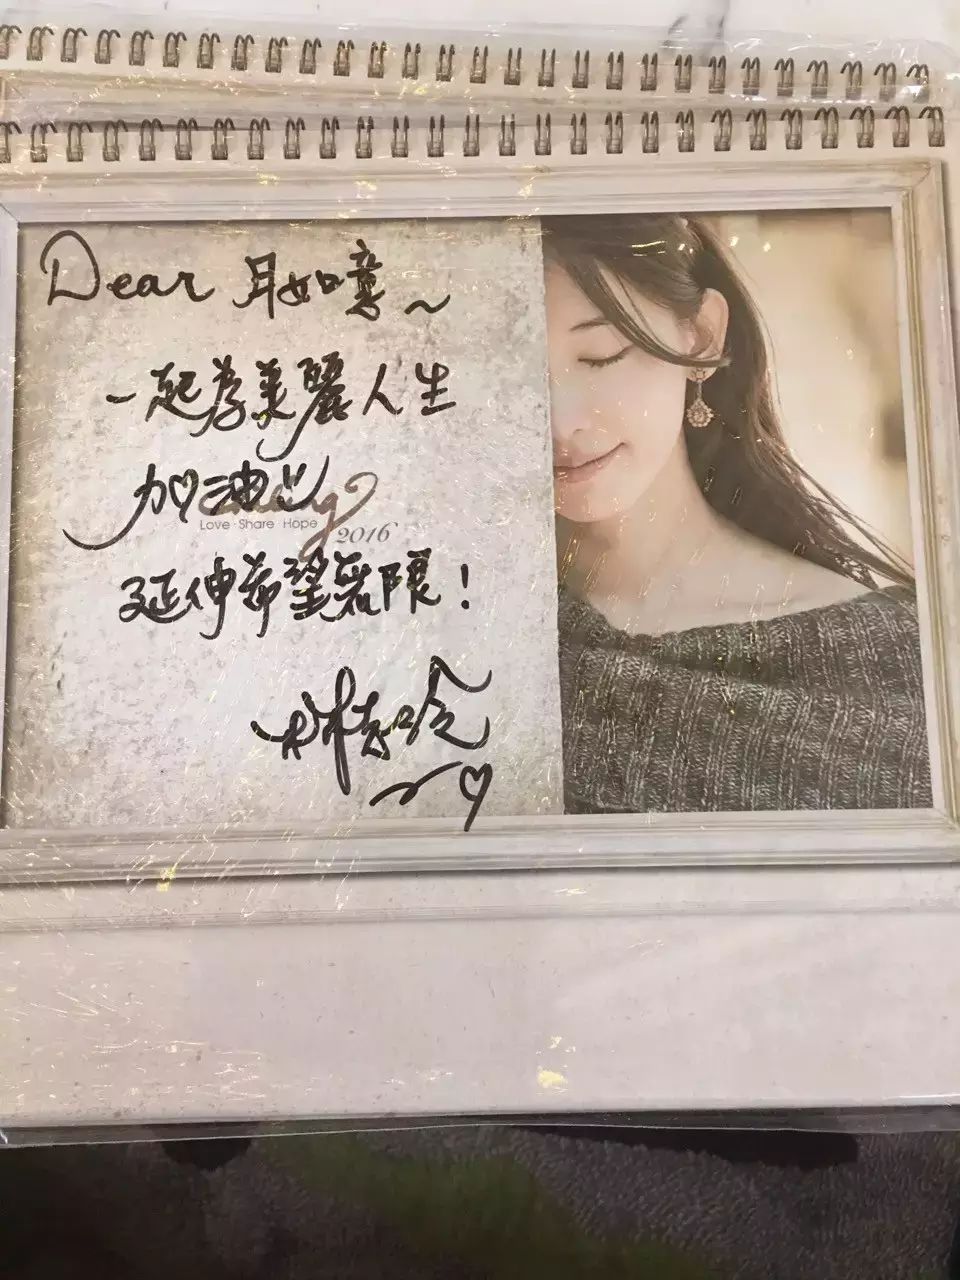 Dear 耳如意~
一起為美麗人生
加油
Love · Share · Hope
2016
延伸希望無限！
林志玲